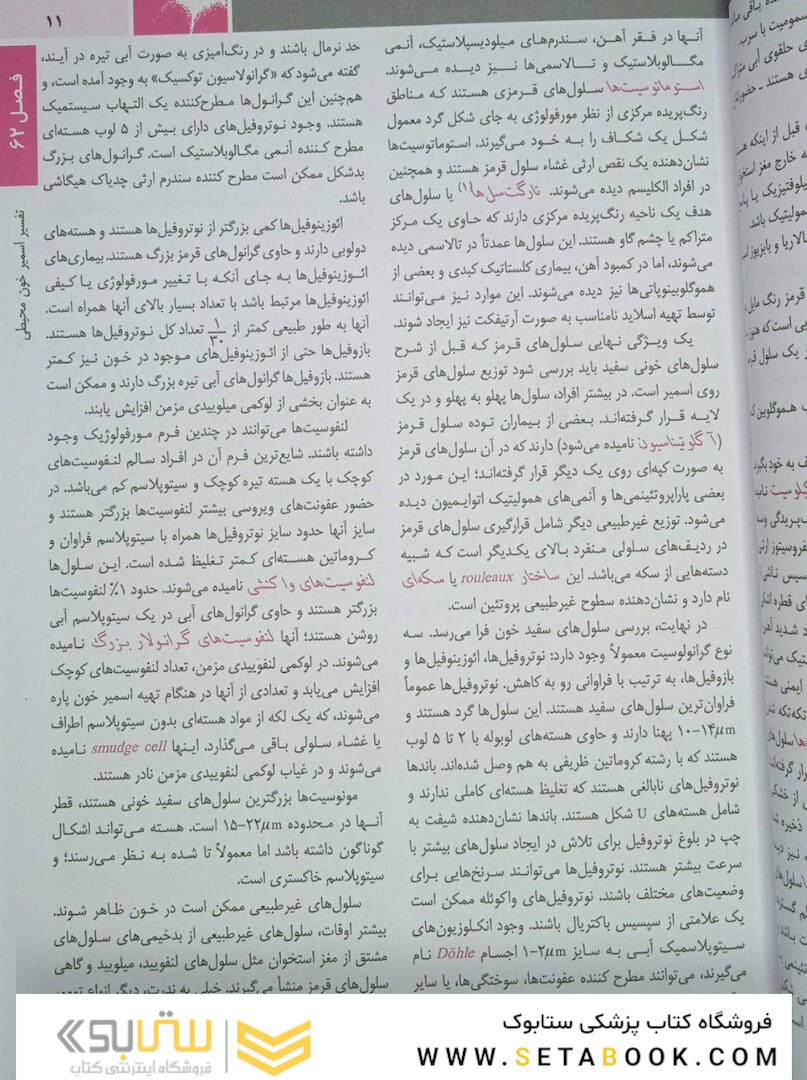 ۱۱
فصل ۶۲
تفسیر اسمیر خون محیطی
آنها در فقر آهن، سندرم‌های میلودیسپلاستیک، آنمی
مگالوبلاستیک و تالاسمی‌ها نیز دیده می‌شوند.
استوماتوسیت‌ها سلول‌های قرمزی هستند که مناطق
رنگ‌پریده مرکزی از نظر مورفولوژی به جای شکل گرد معمول
شکل یک شکاف را به خود می‌گیرند. استوماتوسیت‌ها
نشان‌دهنده یک نقص ارثی غشاء سلول قرمز هستند و همچنین
در افراد الکلیسم دیده می‌شوند. تارگت‌سل‌ها(۱) یا سلول‌های
هدف یک ناحیه رنگ‌پریده مرکزی دارند که حاوی یک مرکز
متراکم یا چشم گاو هستند. این سلول‌ها عمدتاً در تالاسمی دیده
می‌شوند، اما در کمبود آهن، بیماری کلستاتیک کبدی و بعضی از
هموگلوبینوپاتی‌ها نیز دیده می‌شوند. این موارد نیز می‌توانند
توسط تهیه اسلاید نامناسب به صورت آرتیفکت نیز ایجاد شوند.
یک ویژگی نهایی سلول‌های قرمز که قبل از شرح
سلول‌های خونی سفید باید بررسی شود توزیع سلول‌های قرمز
روی اسمیر است. در بیشتر افراد، سلول‌ها پهلو به پهلو و در یک
لایه قرار گرفته‌اند. بعضی از بیماران توده سلول قرمز
(آگلوتیناسیون نامیده می‌شود) دارند که در آن سلول‌های قرمز
به صورت کپه‌ای روی یک دیگر قرار گرفته‌اند؛ این مورد در
بعضی پاراپروتئینمی‌ها و آنمی‌های همولیتیک اتوایمیون دیده
می‌شود. توزیع غیرطبیعی دیگر شامل قرارگیری سلول‌های قرمز
در ردیف‌های سلولی منفرد بالای یکدیگر است که شبیه
دسته‌هایی از سکه می‌باشد. این ساختار rouleaux یا سکه‌ای
نام دارد و نشان‌دهنده سطوح غیرطبیعی پروتئین است.
در نهایت، بررسی سلول‌های سفید خون فرا می‌رسد. سه
نوع گرانولوسیت معمولاً وجود دارد: نوتروفیل‌ها، ائوزینوفیل‌ها و
بازوفیل‌ها، به ترتیب با فراوانی رو به کاهش. نوتروفیل‌ها عموماً
فراوان‌ترین سلول‌های سفید هستند. این سلول‌ها گرد هستند و
۱۰-۱۴µm پهنا دارند و حاوی هسته‌های لوبوله با ۲ تا ۵ لوب
هستند که با رشته کروماتین ظریفی به هم وصل شده‌اند. باندها
نوتروفیل‌های نابالغی هستند که تغلیظ هسته‌ای کاملی ندارند و
شامل هسته‌های U شکل هستند. باندها نشان‌دهنده شیفت به
چپ در بلوغ نوتروفیل برای تلاش در ایجاد سلول‌های بیشتر با
سرعت بیشتر هستند. نوتروفیل‌ها می‌توانند سرنخ‌هایی برای
وضعیت‌های مختلف باشند. نوتروفیل‌های واکوئله ممکن است
یک علامتی از سپسیس باکتریال باشند. وجود انکلوزیون‌های
سیتوپلاسمیک آبی به سایز ۱-۲µm اجسام Döhle نام
می‌گیرند، می‌توانند مطرح کننده عفونت‌ها، سوختگی‌ها، یا سایر
حد نرمال باشند و در رنگ‌آمیزی به صورت آبی تیره در آیند،
گفته می‌شود که «گرانولاسیون توکسیک» به وجود آمده است، و
هم‌چنین این گرانول‌ها مطرح‌کننده یک التهاب سیستمیک
هستند. وجود نوتروفیل‌های دارای بیش از ۵ لوب هسته‌ای
مطرح کننده آنمی مگالوبلاستیک است. گرانول‌های بزرگ
بدشکل ممکن است مطرح کننده سندرم ارثی چدیاک هیگاشی
باشد.
ائوزینوفیل‌ها کمی بزرگتر از نوتروفیل‌ها هستند و هسته‌های
دولوبی دارند و حاوی گرانول‌های قرمز بزرگ هستند. بیماری‌های
ائوزینوفیل‌ها به جای آنکه با تغییر مورفولوژی یا کیفی
ائوزینوفیل‌ها مرتبط باشد با تعداد بسیار بالای آنها همراه است.
آنها به طور طبیعی کمتر از ۱/۳۰ تعداد کل نوتروفیل‌ها هستند.
بازوفیل‌ها حتی از ائوزینوفیل‌های موجود در خون نیز کمتر
هستند. بازوفیل‌ها گرانول‌های آبی تیره بزرگ دارند و ممکن است
به عنوان بخشی از لوکمی میلوییدی مزمن افزایش یابند.
لنفوسیت‌ها می‌توانند در چندین فرم مورفولوژیک وجود
داشته باشند. شایع‌ترین فرم آن در افراد سالم لنفوسیت‌های
کوچک با یک هسته تیره کوچک و سیتوپلاسم کم می‌باشد. در
حضور عفونت‌های ویروسی بیشتر لنفوسیت‌ها بزرگتر هستند و
سایز آنها حدود سایز نوتروفیل‌ها همراه با سیتوپلاسم فراوان و
کروماتین هسته‌ای کمتر تغلیظ شده است. این سلول‌ها
لنفوسیت‌های واکنشی نامیده می‌شوند. حدود ۱٪ لنفوسیت‌ها
بزرگتر هستند و حاوی گرانول‌های آبی در یک سیتوپلاسم آبی
روشن هستند؛ آنها لنفوسیت‌های گرانولار بزرگ نامیده
می‌شوند. در لوکمی لنفوییدی مزمن، تعداد لنفوسیت‌های کوچک
افزایش می‌یابد و تعدادی از آنها در هنگام تهیه اسمیر خون پاره
می‌شوند، که یک لکه از مواد هسته‌ای بدون سیتوپلاسم اطراف
یا غشاء سلولی باقی می‌گذارد. اینها smudge cell نامیده
می‌شوند و در غیاب لوکمی لنفوییدی مزمن نادر هستند.
مونوسیت‌ها بزرگترین سلول‌های سفید خونی هستند، قطر
آنها در محدوده ۱۵-۲۲µm است. هسته می‌تواند اشکال
گوناگون داشته باشد اما معمولاً تا شده به نظر می‌رسند؛ و
سیتوپلاسم خاکستری است.
سلول‌های غیرطبیعی ممکن است در خون ظاهر شوند.
بیشتر اوقات، سلول‌های غیرطبیعی از بدخیمی‌های سلول‌های
مشتق از مغز استخوان مثل سلول‌های لنفویید، میلویید و گاهی
سلول‌های قرمز منشأ می‌گیرند. خیلی به ندرت، دیگر انواع تومور
فروشگاه کتاب پزشکی ستابوک
WWW.SETABOOK.COM
ستابوک
فروشگاه اینترنتی کتاب